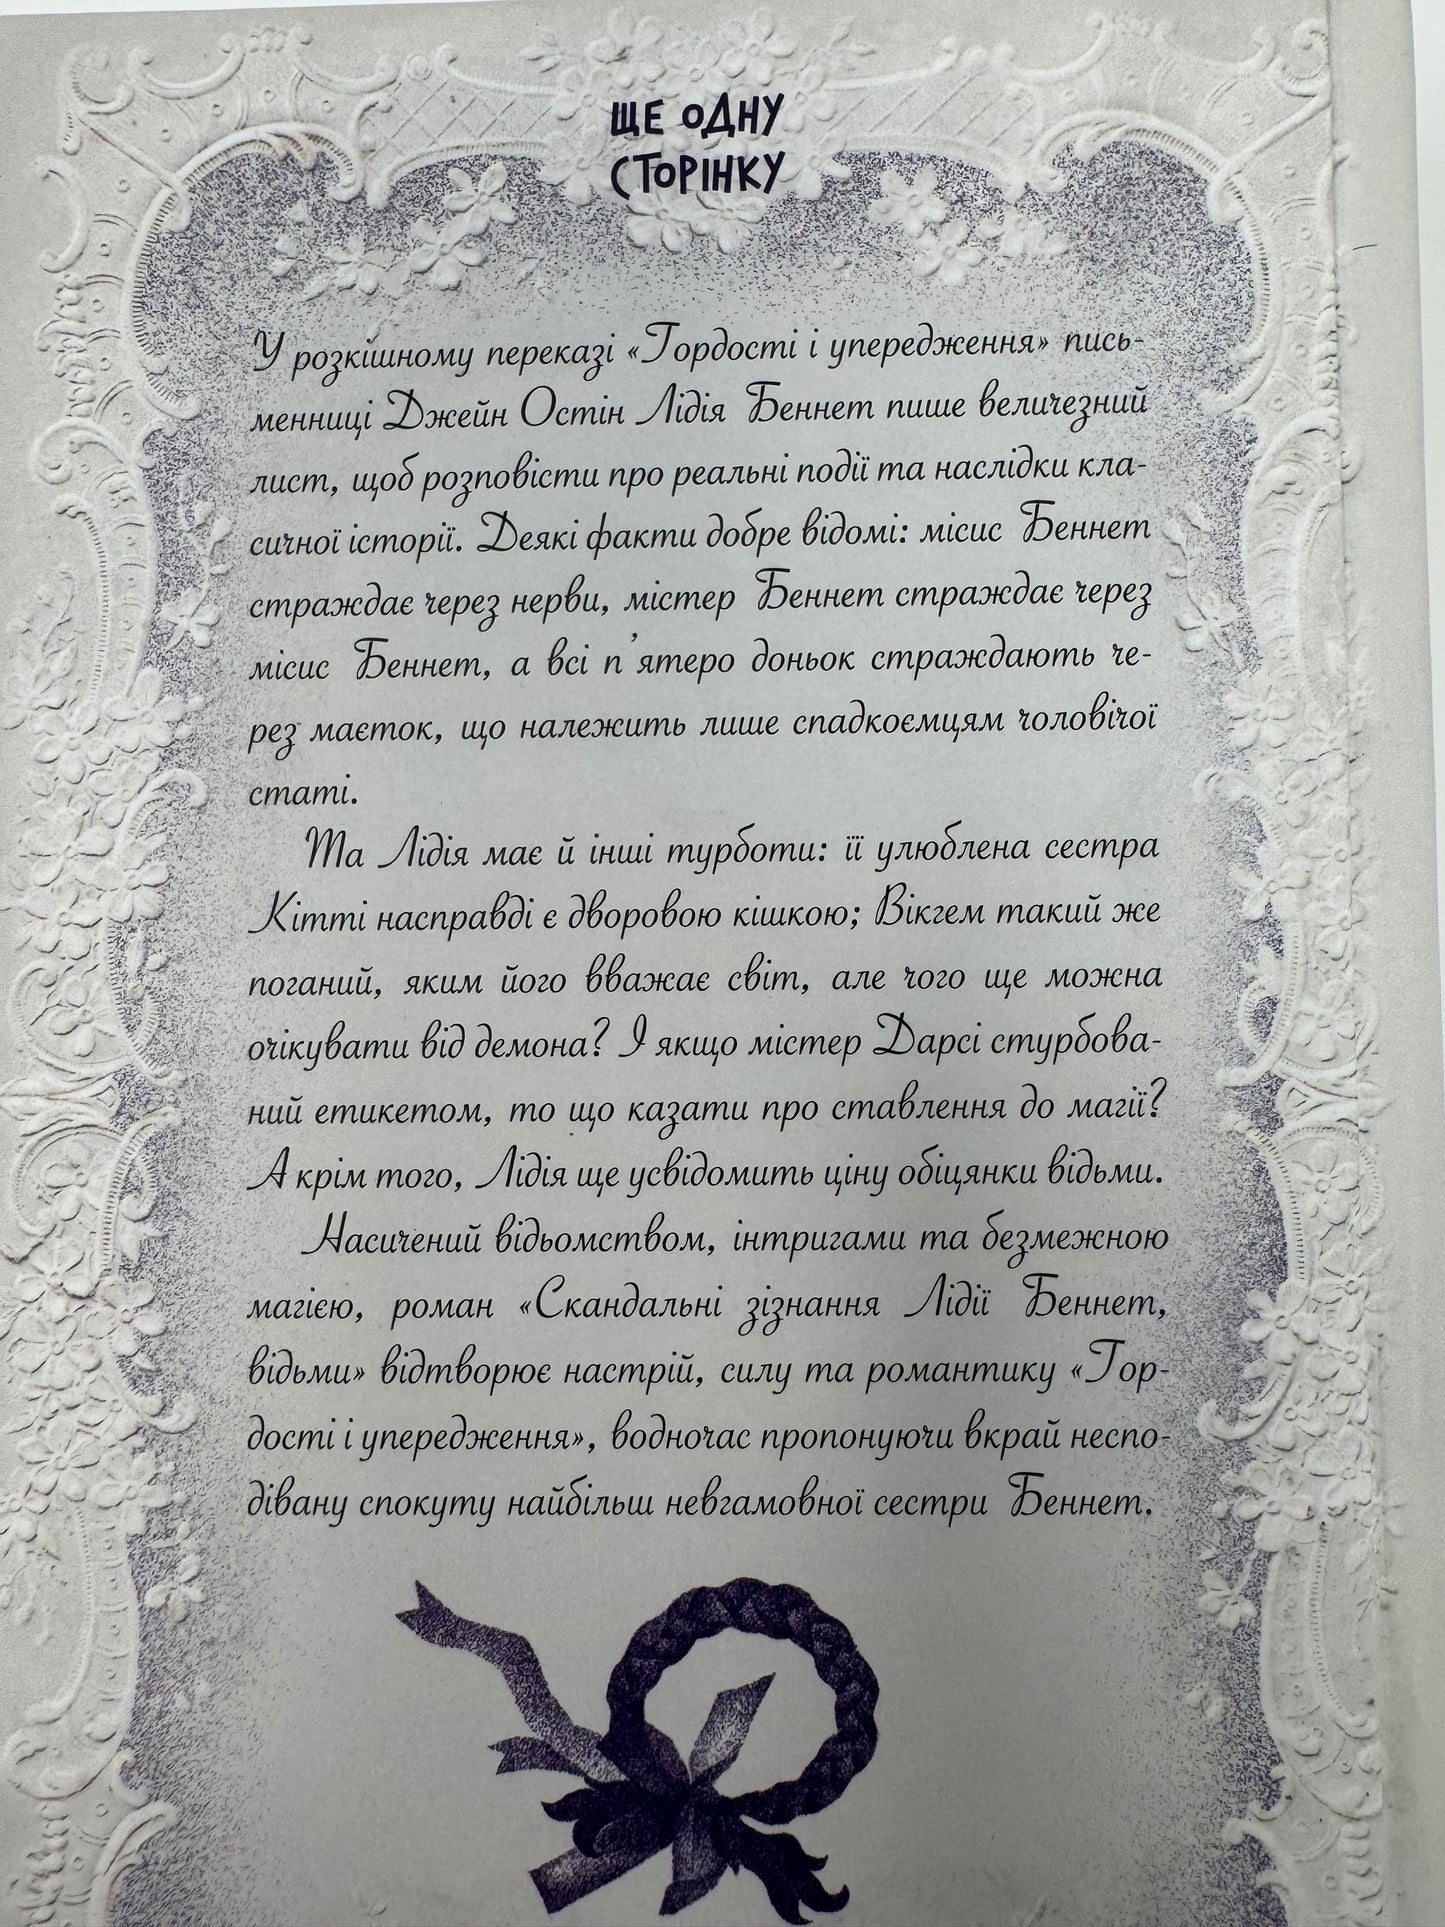 ЩЕ ОДНУ
СТОРІНКУ
У розкішному переказі «Гордості і упередження» пись-
менниці Джейн Остін Лідія Беннет пише величезний
лист, щоб розповісти про реальні події та наслідки кла-
сичної історії. Деякі факти добре відомі: місис Беннет
страждає через нерви, містер Беннет страждає через
місис Беннет, а всі п’ятеро доньок страждають че-
рез маєток, що належить лише спадкоємцям чоловічої
статі.
Та Лідія має й інші турботи: її улюблена сестра
Кітті насправді є дворовою кішкою; Вікгем такий же
поганий, яким його вважає світ, але чого ще можна
очікувати від демона? І якщо містер Дарсі стурбова-
ний етикетом, то що казати про ставлення до магії?
А крім того, Лідія ще усвідомить ціну обіцянки відьми.
Насичений відьомством, інтригами та безмежною
магією, роман «Скандальні зізнання Лідії Беннет,
відьми» відтворює настрій, силу та романтику «Гор-
дості і упередження», водночас пропонуючи вкрай неспо-
дівану спокуту найбільш невгамовної сестри Беннет.